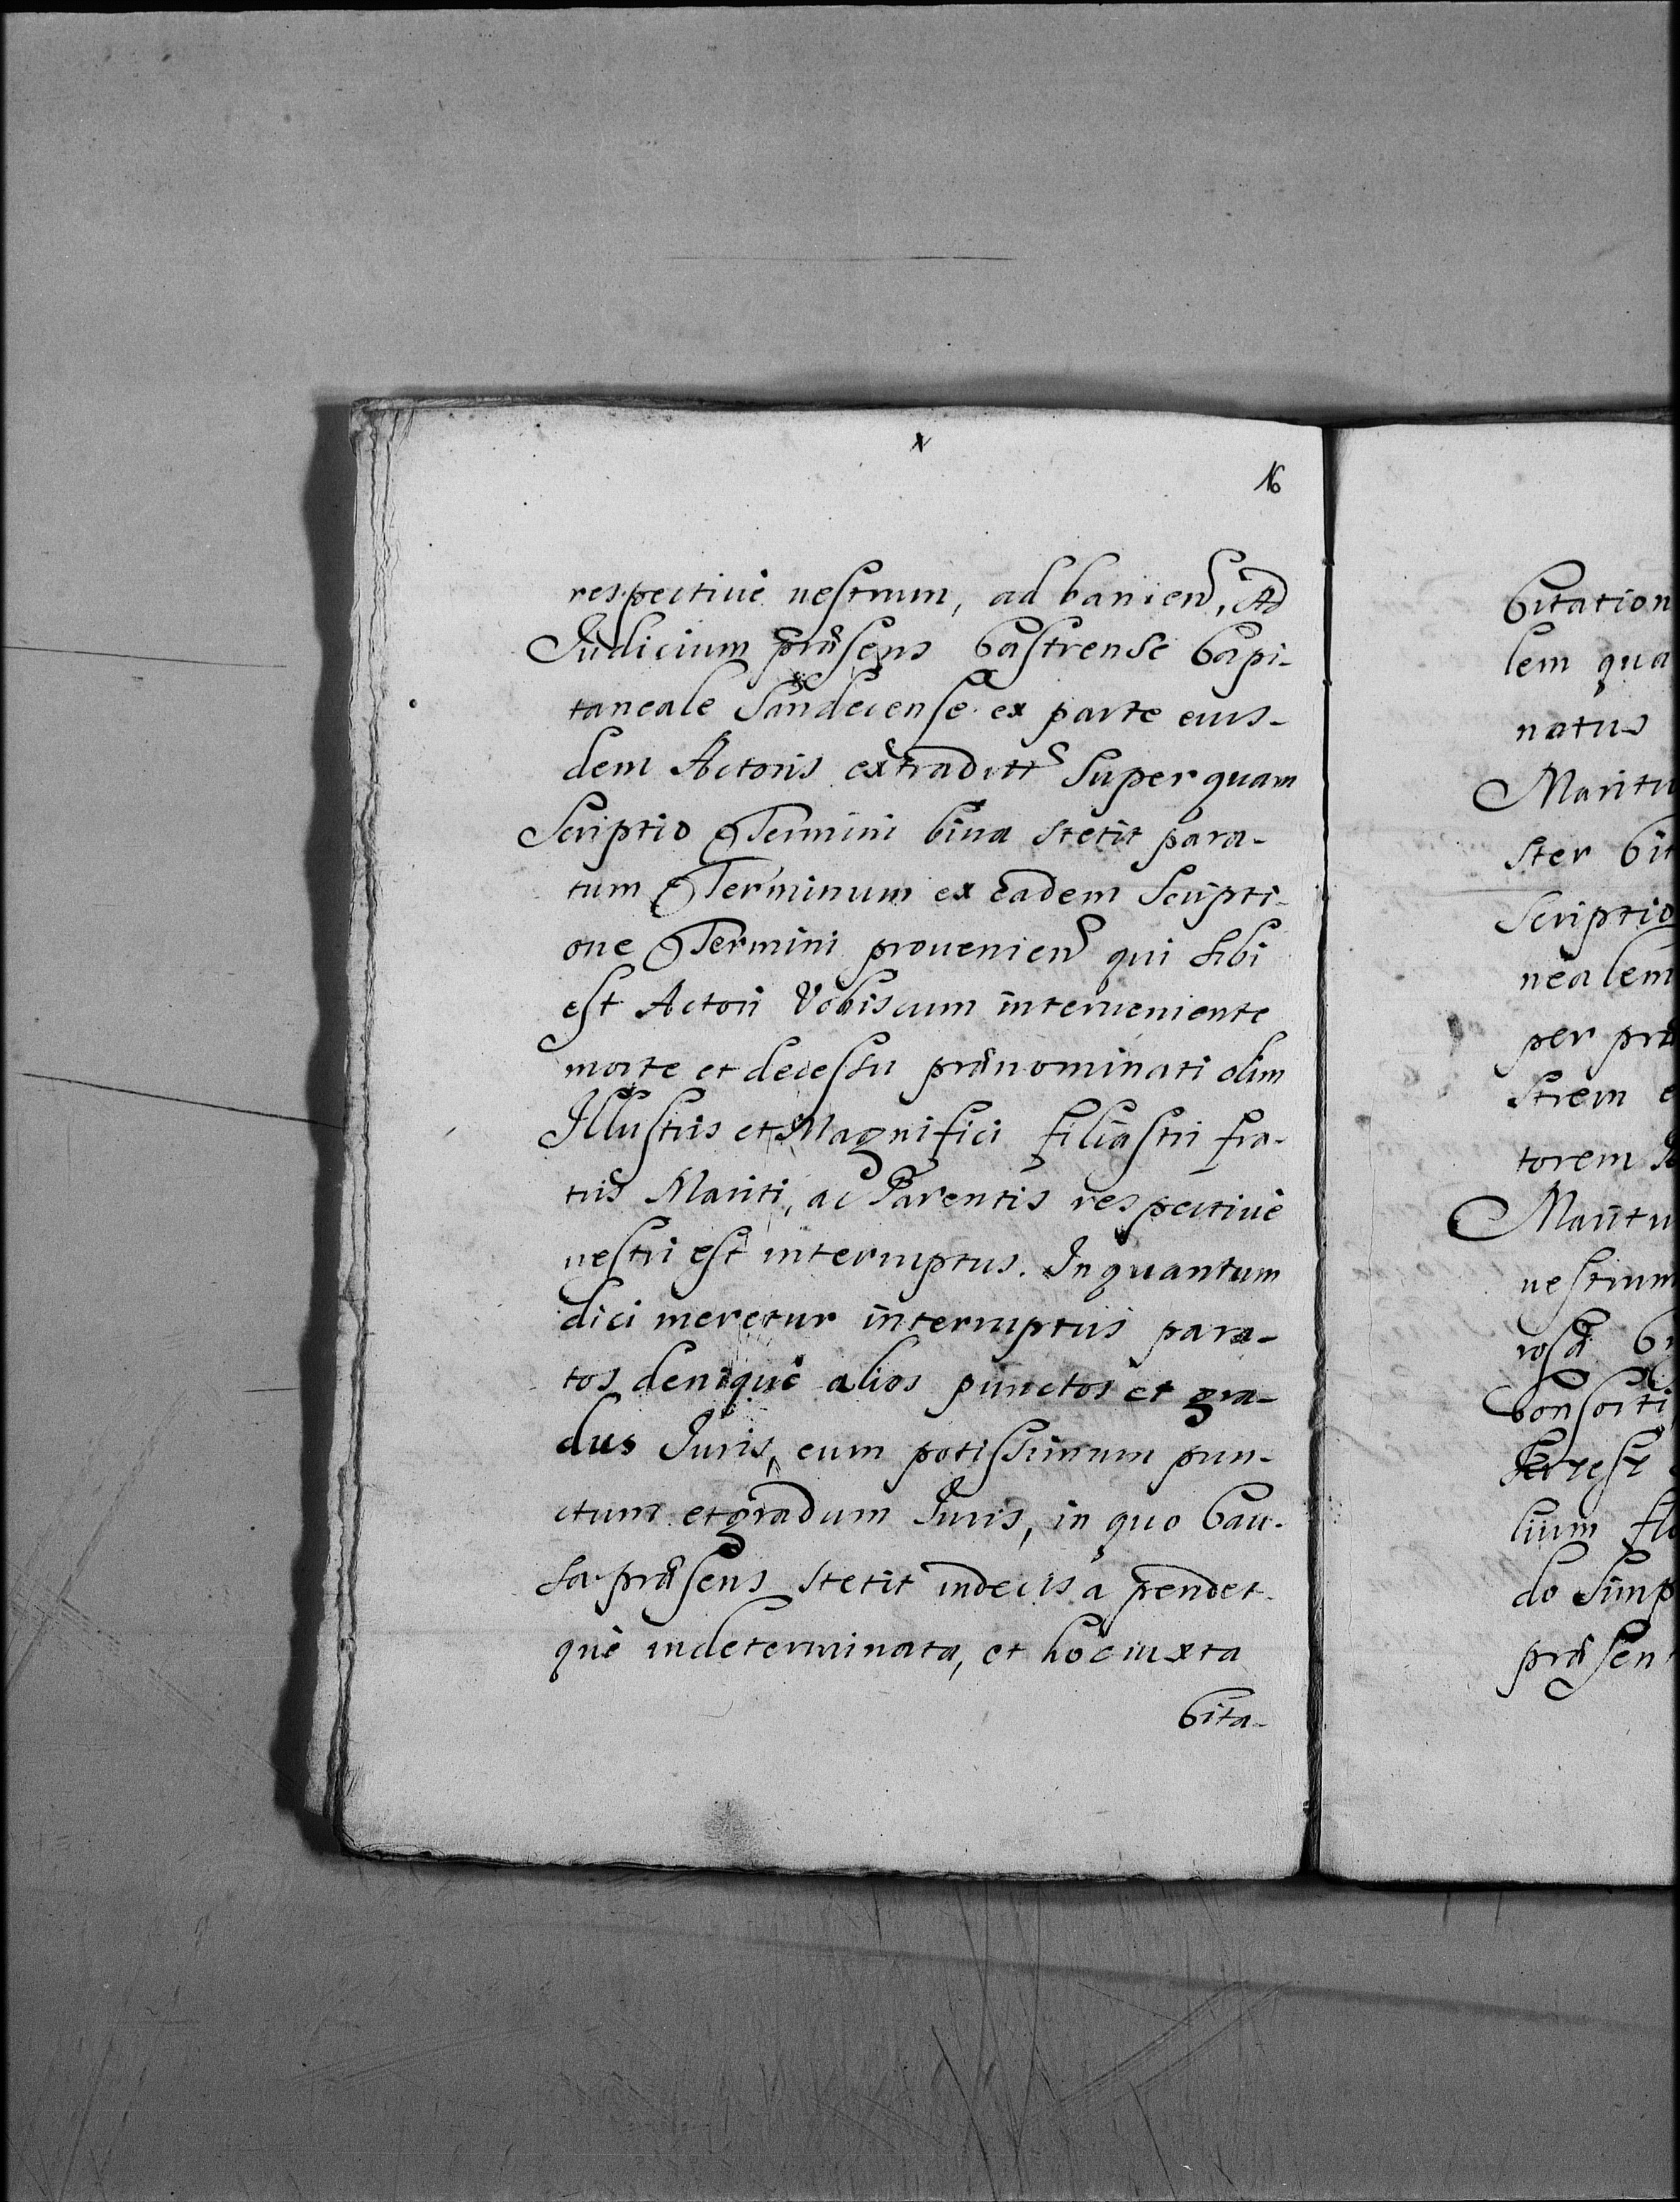 16
respective vestrum, ad banien, Ad
Judicium præsens Castrense Capi-
taneale Sandecense ex parte eius-
dem Actoris extraditt Super quam
Scriptio Termini bina stetit para-
tum Terminum ex eadem Scripti-
one Termini provenien qui sibi
est Actori Vobiscum interveniente
morte et decessu prænominati olim
Illustris et Magnifici filiastri fra-
tris Mariti, ac Parentis respective
vestri est interruptus. Inquantum
dici meretur interruptus para-
tos denique alios punctos et gra-
dus Juris, eum potissimum pun-
ctum et gradum Juris, in quo Cau-
sa præsens stetit indecisa pendet-
que indeterminata, et hoc iuxta
Cita-
Citation
lem qua
natus
Maritu
ster Cit
Scriptio
nealem
per præ
strem e
torem
Maritu
vestrum
rosa
Consorti
lium
do Simp
præsen